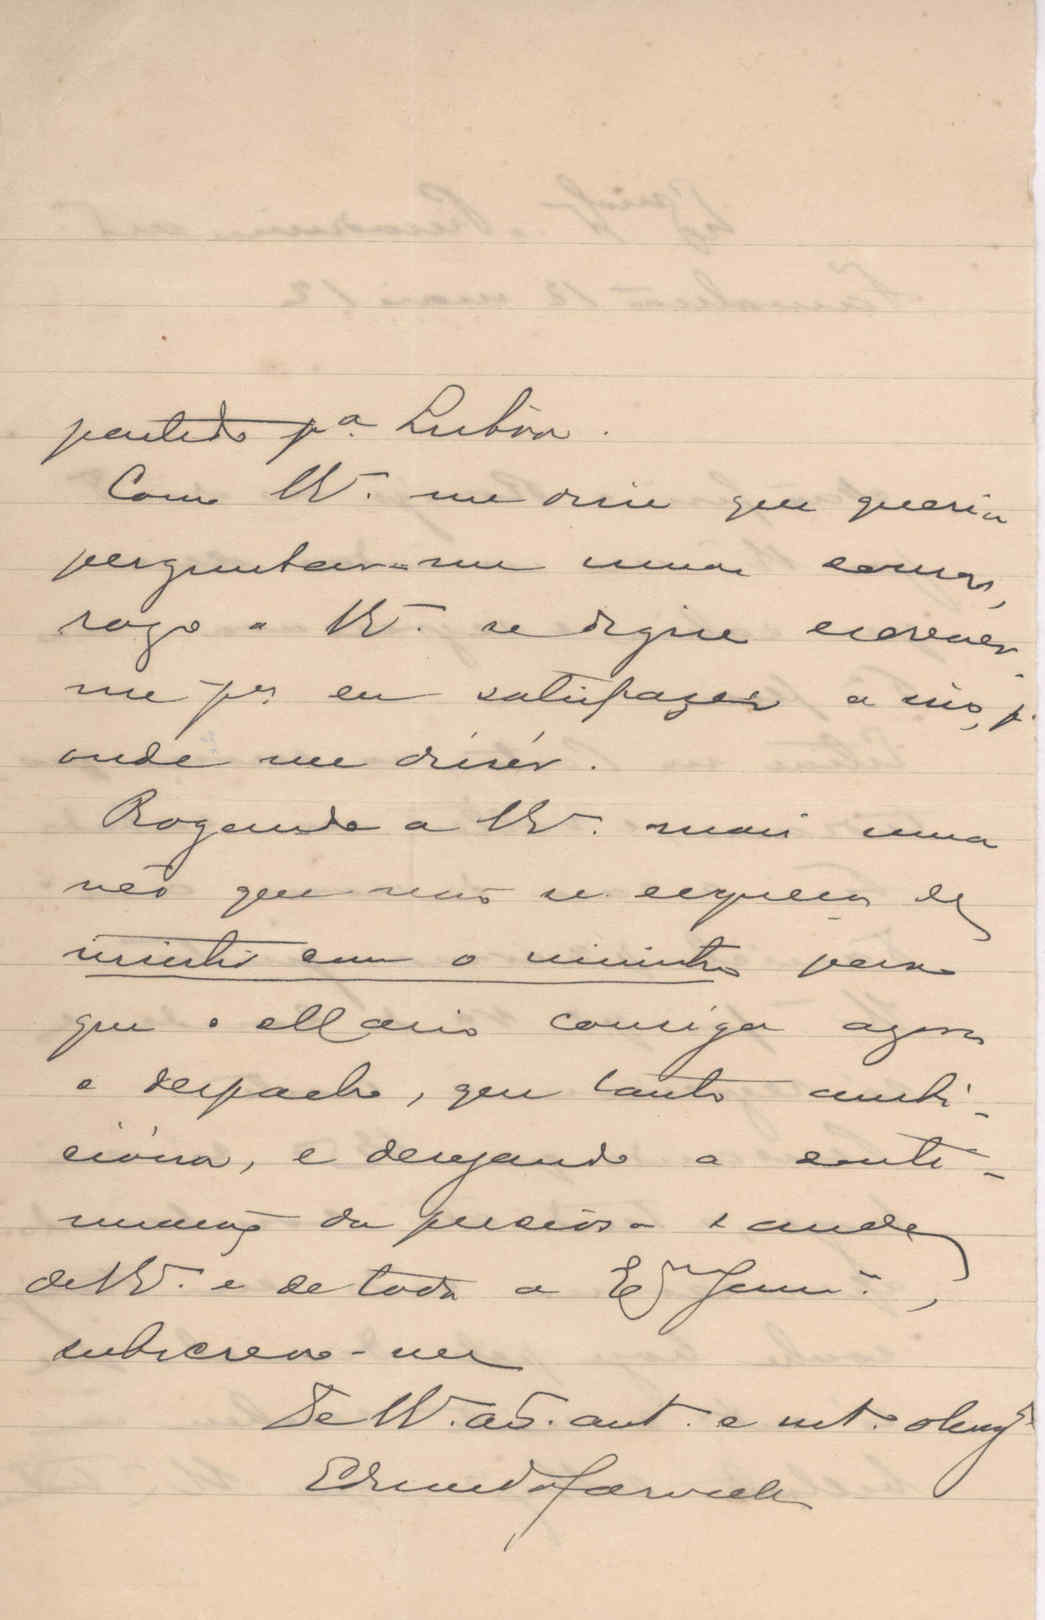 partido pª. Lisbôa.
Como V. Exª. me disse que queria
perguntar-me uma cousa,
rogo a V. Exª. se digne escrever
me pª eu satisfazer a isso, pª
onde me disser.
Rogando a V. Exª. mais uma
vez que não se esqueça de
insistir com o ministro para
que o Mario consiga agora
o despacho, que tanto ambi-
ciona, e desejando a conti-
nuação da preciosa saude
de V. Exª. e de toda a Exma Famª.,
subscrevo-me
De V. Exª. amt. e mtº. obrigdº